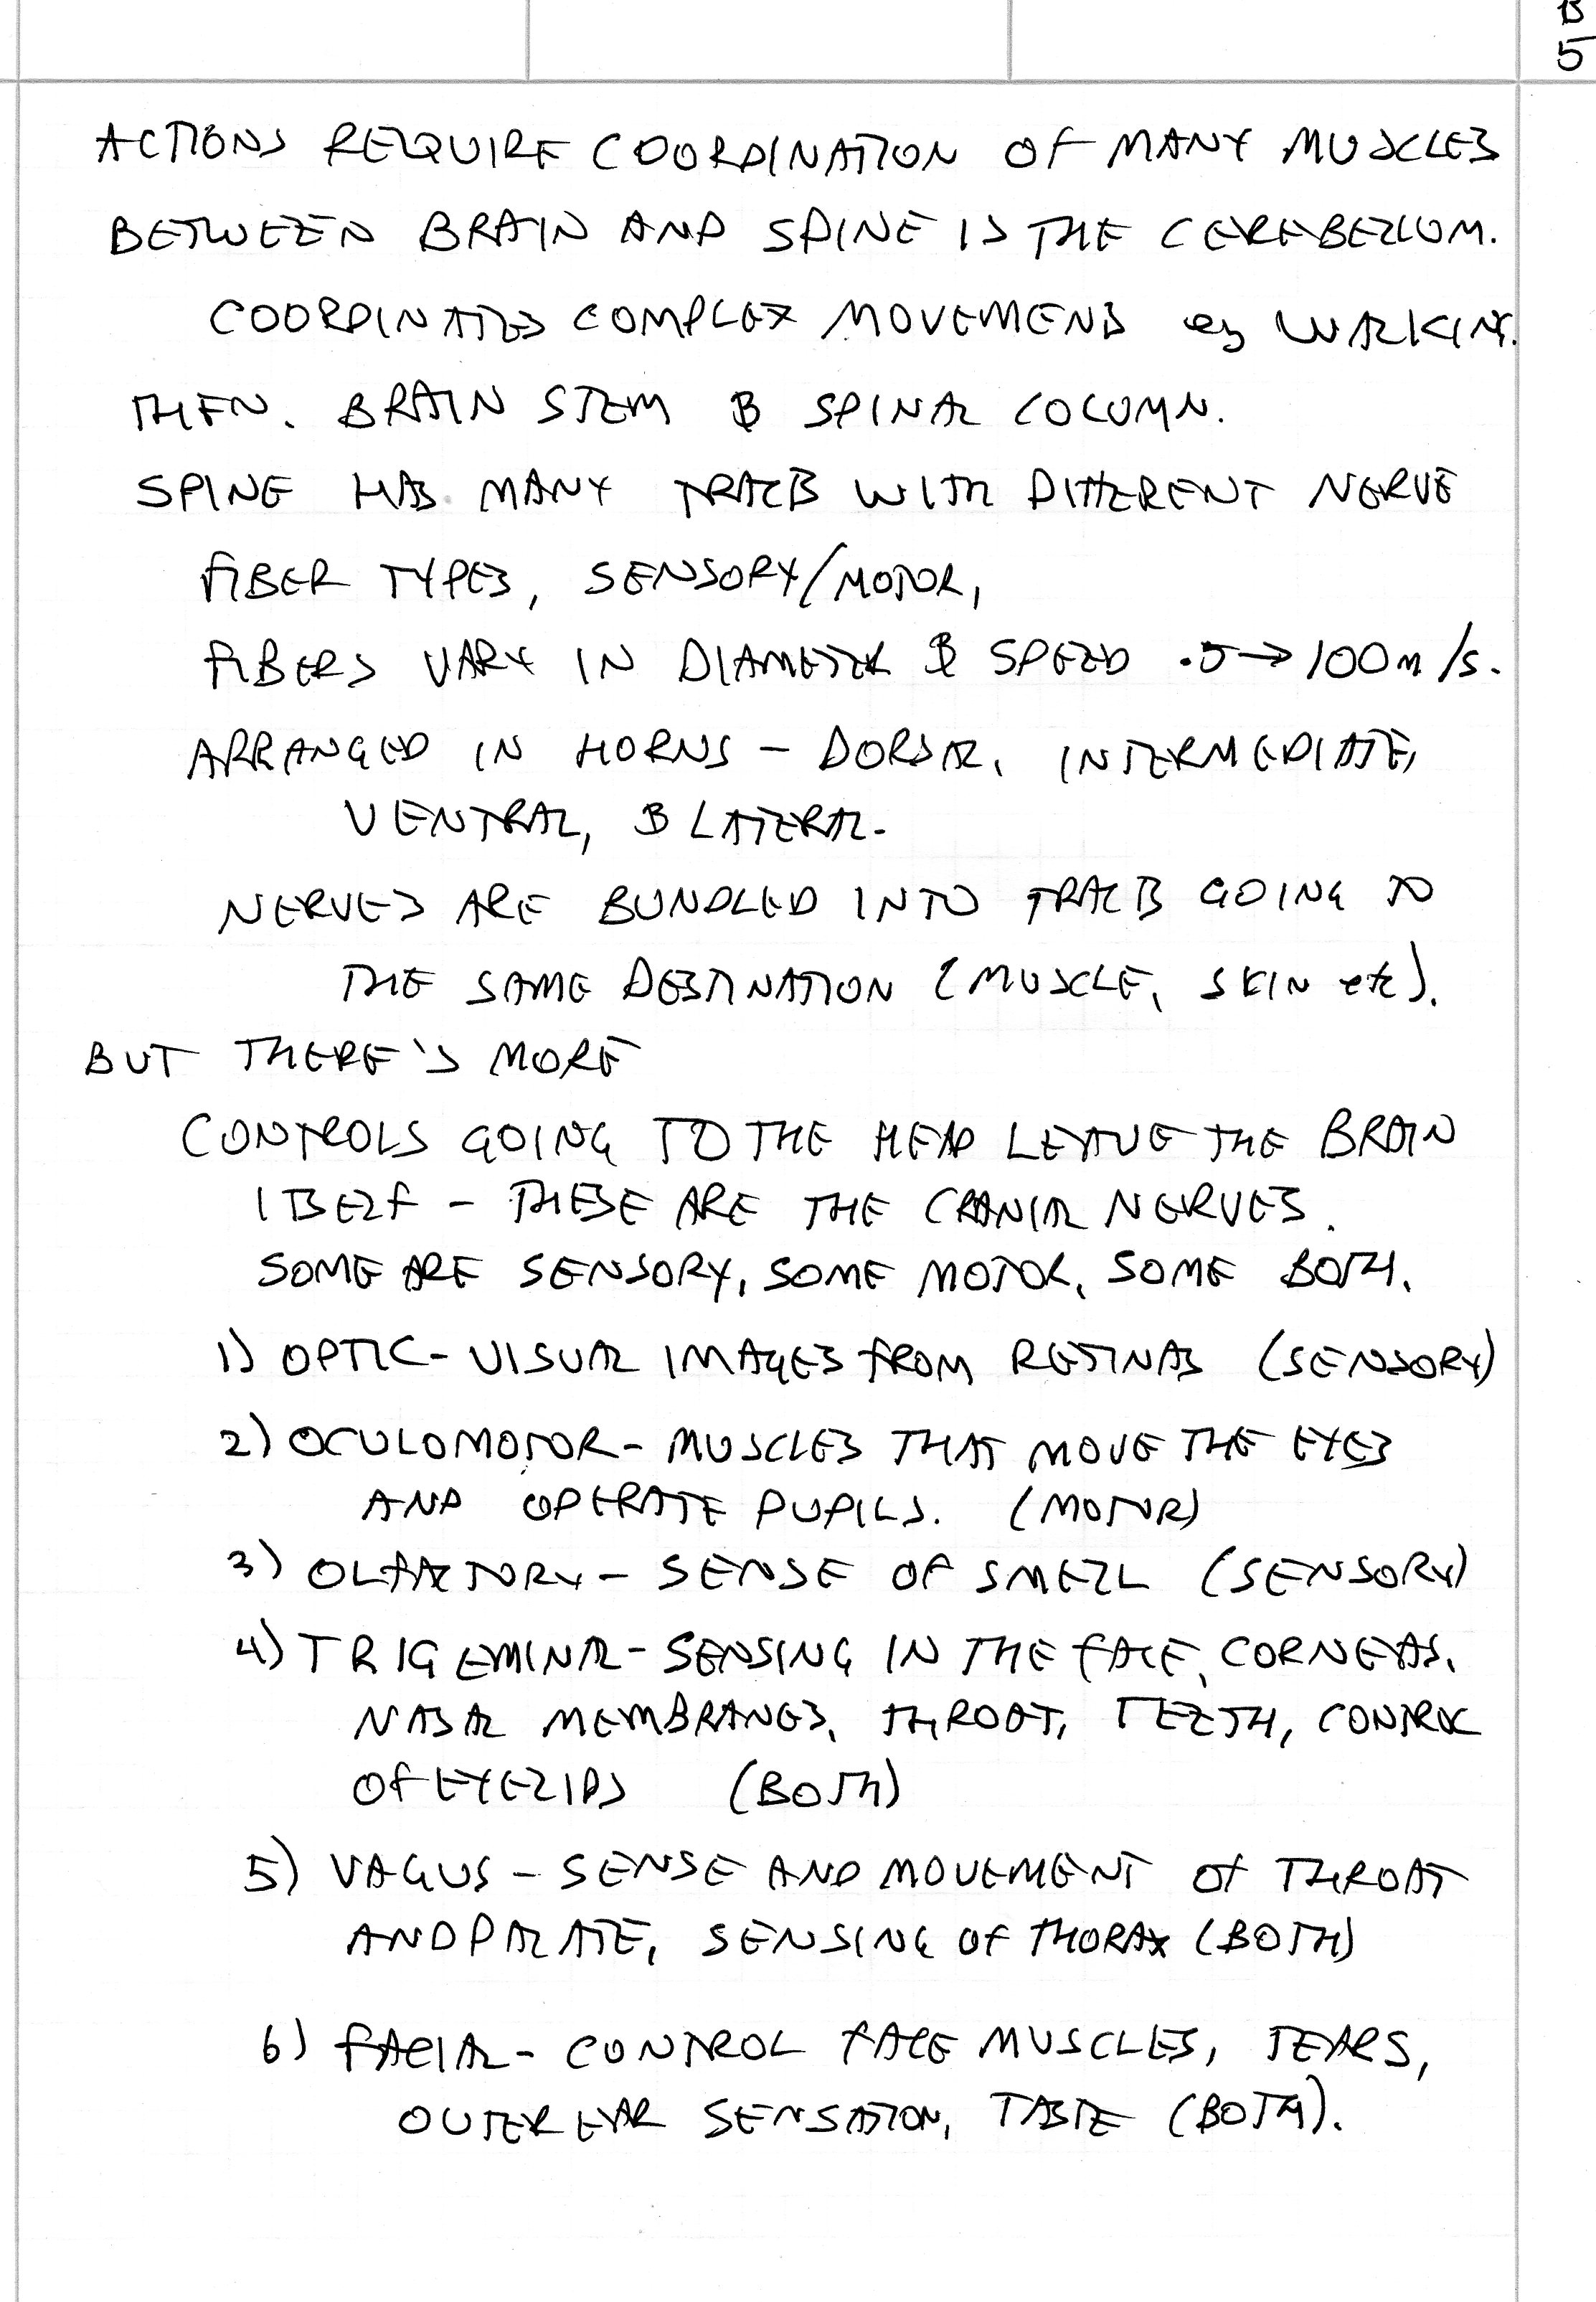 B
5
ACTIONS REQUIRE COORDINATION OF MANY MUSCLES
BETWEEN BRAIN AND SPINE IS THE CEREBELLUM.
COORDINATES COMPLEX MOVEMENTS eg WALKING.
THEN. BRAIN STEM & SPINAL COLUMN.
SPINE HAS MANY TRACTS WITH DIFFERENT NERVE
FIBER TYPES, SENSORY/MOTOR,
FIBERS VARY IN DIAMETER & SPEED .5→100m/s.
ARRANGED IN HORNS - DORSAL, INTERMEDIATE,
VENTRAL, & LATERAL.
NERVES ARE BUNDLED INTO TRACTS GOING TO
THE SAME DESTINATION (MUSCLE, SKIN etc).
BUT THERE'S MORE
CONTROLS GOING TO THE HEAD LEAVE THE BRAIN
ITSELF - THESE ARE THE CRANIAL NERVES.
SOME ARE SENSORY, SOME MOTOR, SOME BOTH.
1) OPTIC - VISUAL IMAGES FROM RETINAS (SENSORY)
2) OCULOMOTOR - MUSCLES THAT MOVE THE EYES
AND OPERATE PUPILS. (MOTOR)
3) OLFACTORY - SENSE OF SMELL (SENSORY)
4) TRIGEMINAL - SENSING IN THE FACE, CORNEAS,
NASAL MEMBRANES, THROAT, TEETH, CONTROL
OF EYELIDS (BOTH)
5) VAGUS - SENSE AND MOVEMENT OF THROAT
AND PALATE, SENSING OF THORAX (BOTH)
6) FACIAL - CONTROL FACE MUSCLES, TEARS,
OUTER EAR SENSATION, TASTE (BOTH).